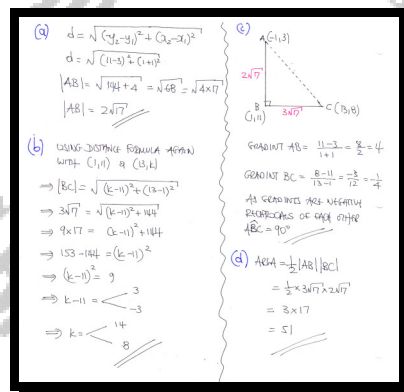 (a) d = √((y₂-y₁)² + (x₂-x₁)²)
d = √((11-3)² + (1+1)²)
|AB| = √(144+4) = √68 = √(4×17)
|AB| = 2√17
(b) USING DISTANCE FORMULA AGAIN
WITH (1,11) & (13,k)
⇒ |BC| = √((k-11)² + (13-1)²)
⇒ 3√17 = √((k-11)² + 144)
⇒ 9×17 = (k-11)² + 144
⇒ 153-144 = (k-11)²
⇒ (k-11)² = 9
⇒ k-11 = < 3
-3
⇒ k = < 14
8
(c)
A(-1,3)
2√17
B
3√17
C (13,8)
(1,11)
GRADIENT AB = (11-3)/(1+1) = 8/2 = 4
GRADIENT BC = (8-11)/(13-1) = -3/12 = -1/4
AS GRADIENTS ARE NEGATIVE
RECIPROCALS OF EACH OTHER
ABC = 90°
(d) AREA = ½|AB||BC|
= ½ × 3√17 × 2√17
= 3×17
= 51